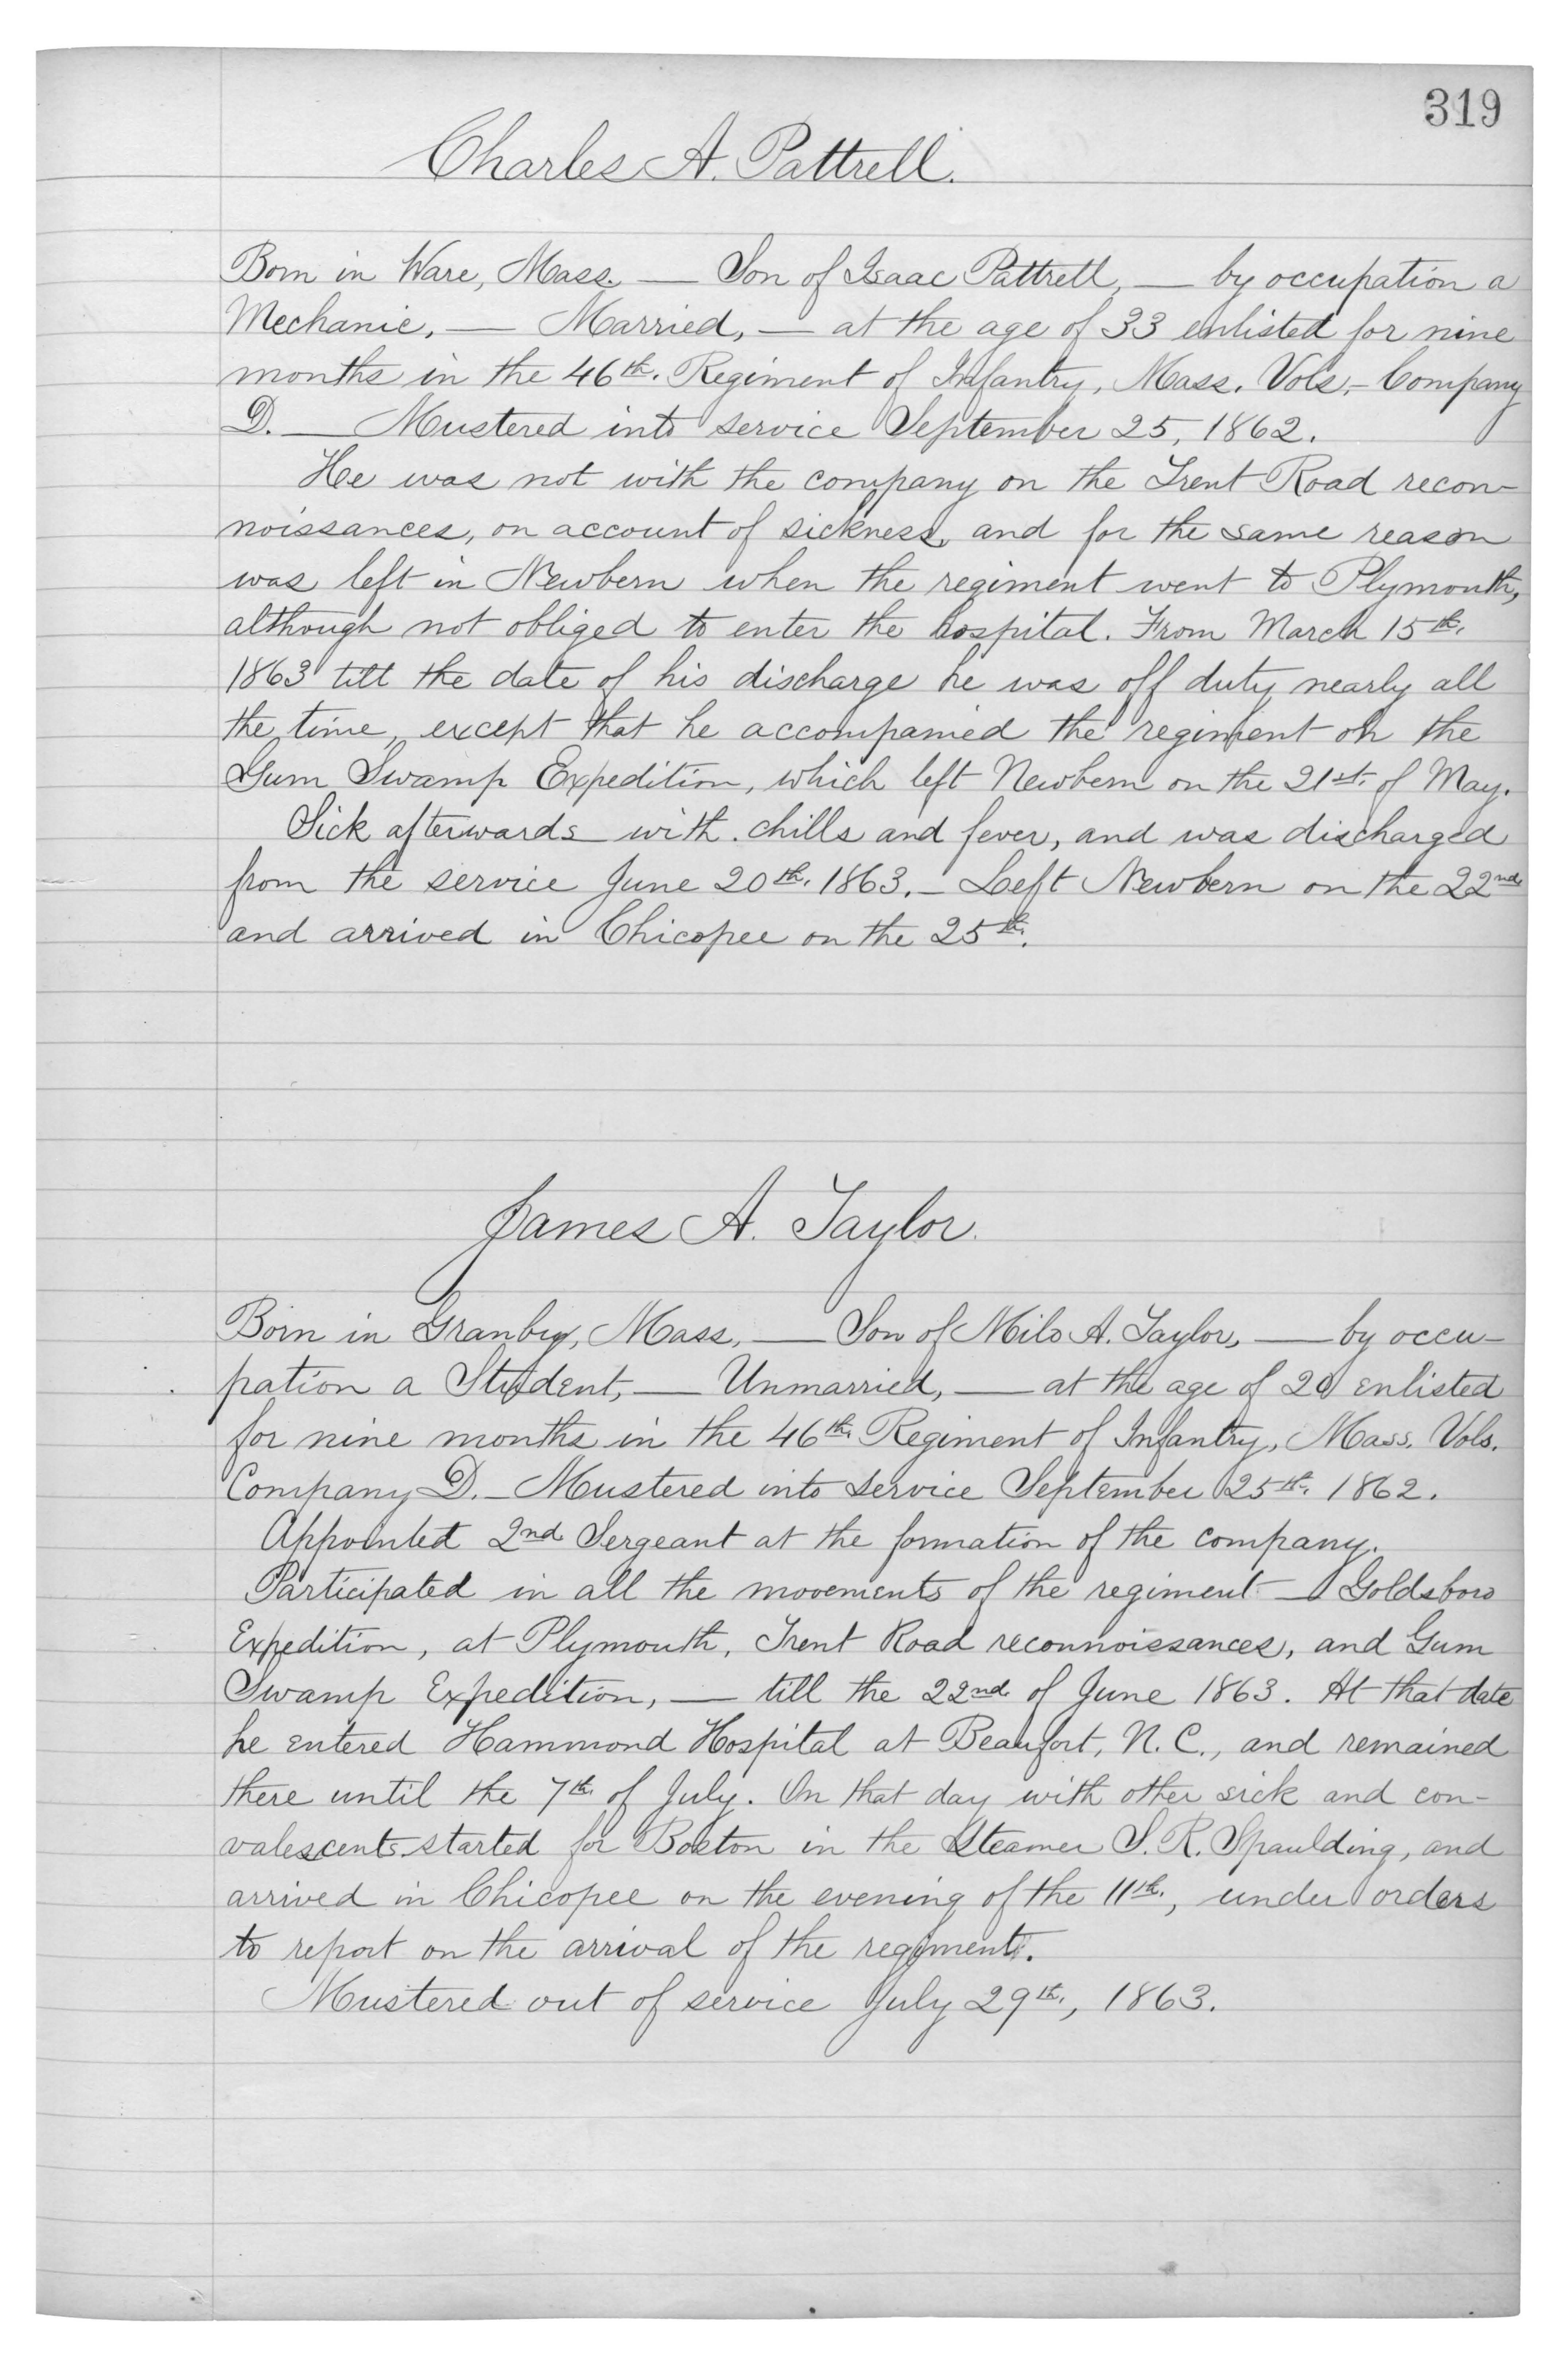 319
Charles A. Pattrell.
Born in Ware, Mass. — Son of Isaac Pattrell, — by occupation a
Mechanic, — Married, — at the age of 33 enlisted for nine
months in the 46th. Regiment of Infantry, Mass. Vols, - Company
D. — Mustered into service September 25, 1862.
He was not with the company on the Trent Road recon-
noissances, on account of sickness, and for the same reason
was left in Newbern when the regiment went to Plymouth,
although not obliged to enter the hospital. From March 15th.
1863 till the date of his discharge he was off duty nearly all
the time, except that he accompanied the regiment on the
Gum Swamp Expedition, which left Newbern on the 21st. of May.
Sick afterwards with chills and fever, and was discharged
from the service June 20th. 1863. - Left Newbern on the 22nd.
and arrived in Chicopee on the 25th.
James A. Taylor.
Born in Granby, Mass, — Son of Milo A. Taylor, — by occu-
pation a Student, — Unmarried, — at the age of 20 enlisted
for nine months in the 46th. Regiment of Infantry, Mass. Vols.
Company D. - Mustered into service September 25th. 1862.
Appointed 2nd. Sergeant at the formation of the company.
Participated in all the movements of the regiment — Goldsboro
Expedition, at Plymouth, Trent Road reconnoissances, and Gum
Swamp Expedition, — till the 22nd. of June 1863. At that date
he entered Hammond Hospital at Beaufort, N. C., and remained
there until the 7th. of July. On that day with other sick and con-
valescents started for Boston in the Steamer S. R. Spaulding, and
arrived in Chicopee on the evening of the 11th., under orders
to report on the arrival of the regiment.
Mustered out of service July 29th., 1863.